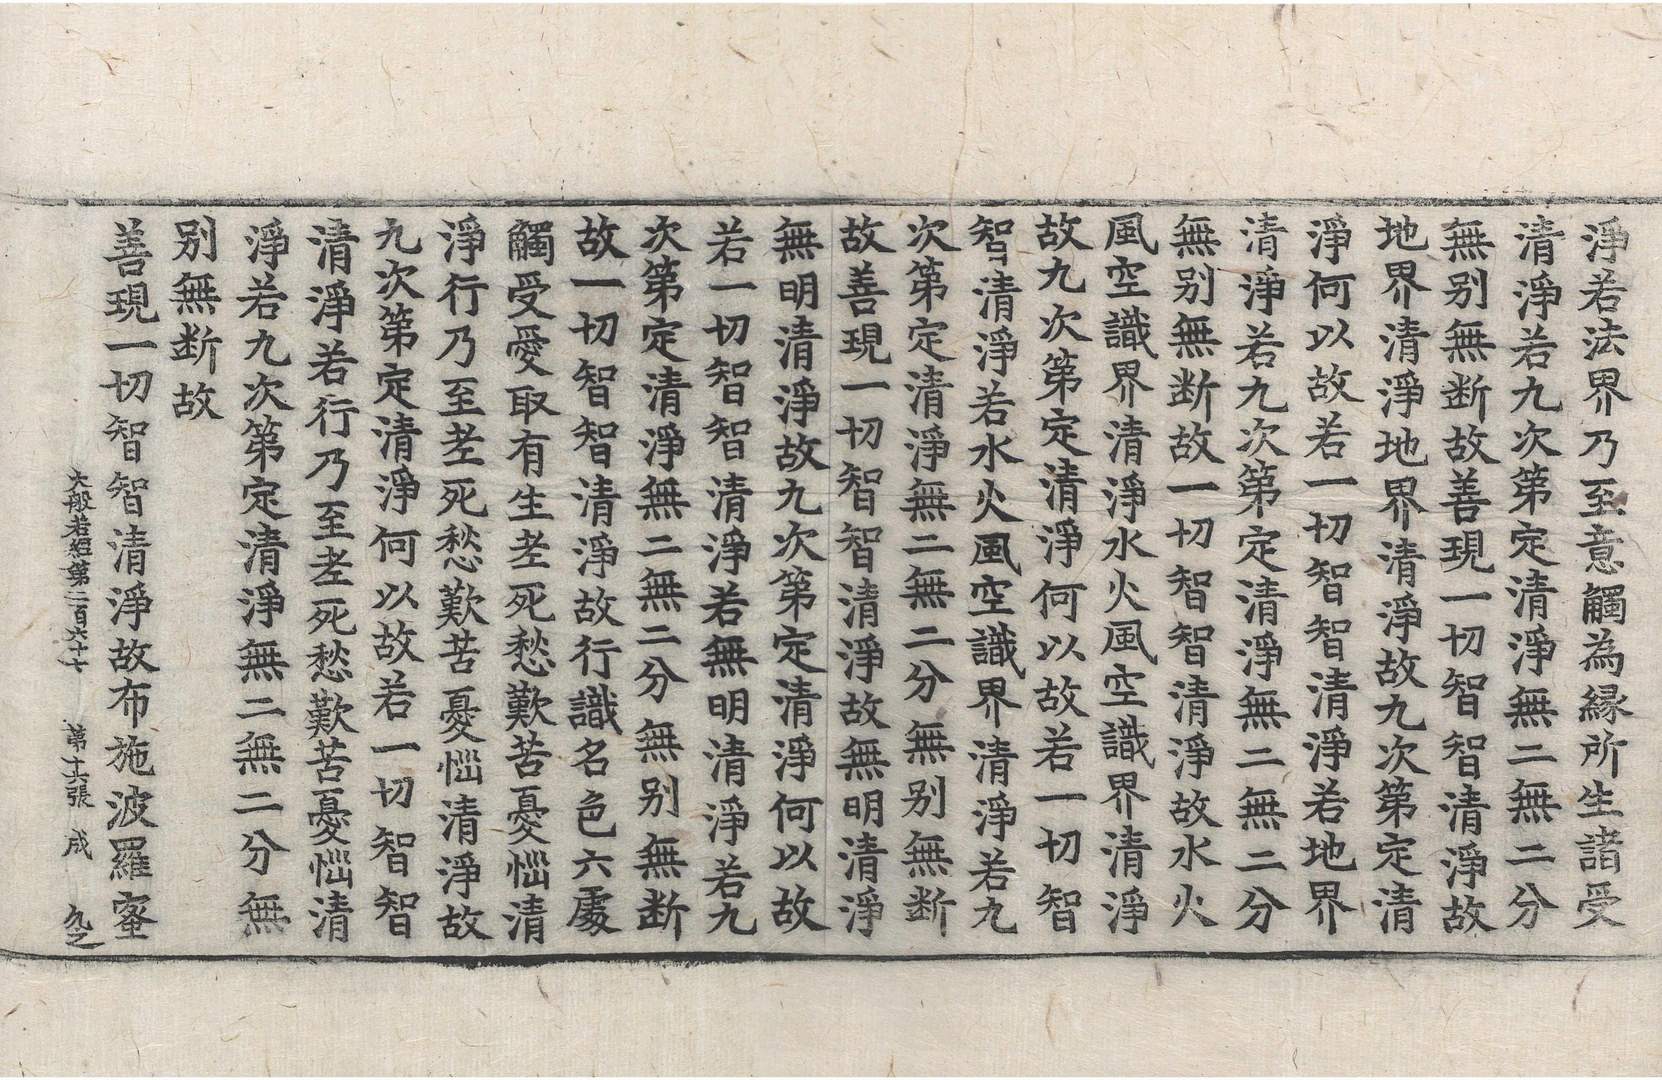 淨若法界乃至意觸為縁所生諸受
清淨若九次第定清淨無二無二分
無别無断故善現一切智智清淨故
地界清淨地界清淨故九次第定清
淨何以故若一切智智清淨若地界
清淨若九次第定清淨無二無二分
無别無断故一切智智清淨故水火
風空識界清淨水火風空識界清淨
故九次第定清淨何以故若一切智
智清淨若水火風空識界清淨若九
次第定清淨無二無二分無别無断
故善現一切智智清淨故無明清淨
無明清淨故九次第定清淨何以故
若一切智智清淨若無明清淨若九
次第定清淨無二無二分無别無断
故一切智智清淨故行識名色六處
觸受愛取有生老死愁歎苦憂惱清
淨行乃至老死愁歎苦憂惱清淨故
九次第定清淨何以故若一切智智
清淨若行乃至老死愁歎苦憂惱清
淨若九次第定清淨無二無二分無
别無断故
善現一切智智清淨故布施波羅蜜
大般若經第二百六十七 第十六張